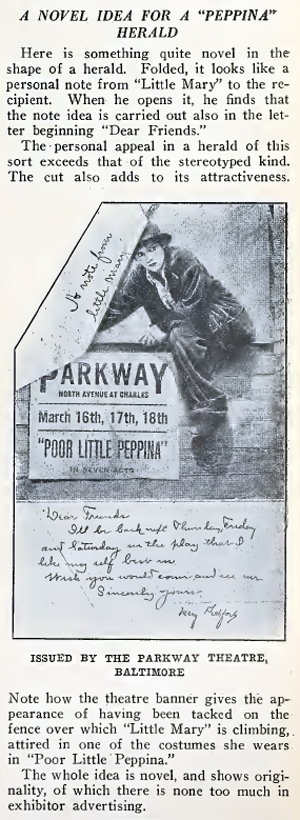 A NOVEL IDEA FOR A "PEPPINA"
HERALD
Here is something quite novel in the
shape of a herald. Folded, it looks like a
personal note from "Little Mary" to the re-
cipient. When he opens it, he finds that
the note idea is carried out also in the let-
ter beginning "Dear Friends."
The personal appeal in a herald of this
sort exceeds that of the stereotyped kind.
The cut also adds to its attractiveness.
A note from
little Mary
PARKWAY
NORTH AVENUE AT CHARLES
March 16th, 17th, 18th
"POOR LITTLE PEPPINA"
IN SEVEN ACTS
Dear Friends
I'll be back next Thursday, Friday
and Saturday in the play that I
like my self best in.
Wish you would come and see me
Sincerely yours
Mary Pickford
ISSUED BY THE PARKWAY THEATRE,
BALTIMORE
Note how the theatre banner gives the ap-
pearance of having been tacked on the
fence over which "Little Mary" is climbing,
attired in one of the costumes she wears
in "Poor Little Peppina."
The whole idea is novel, and shows origi-
nality, of which there is none too much in
exhibitor advertising.